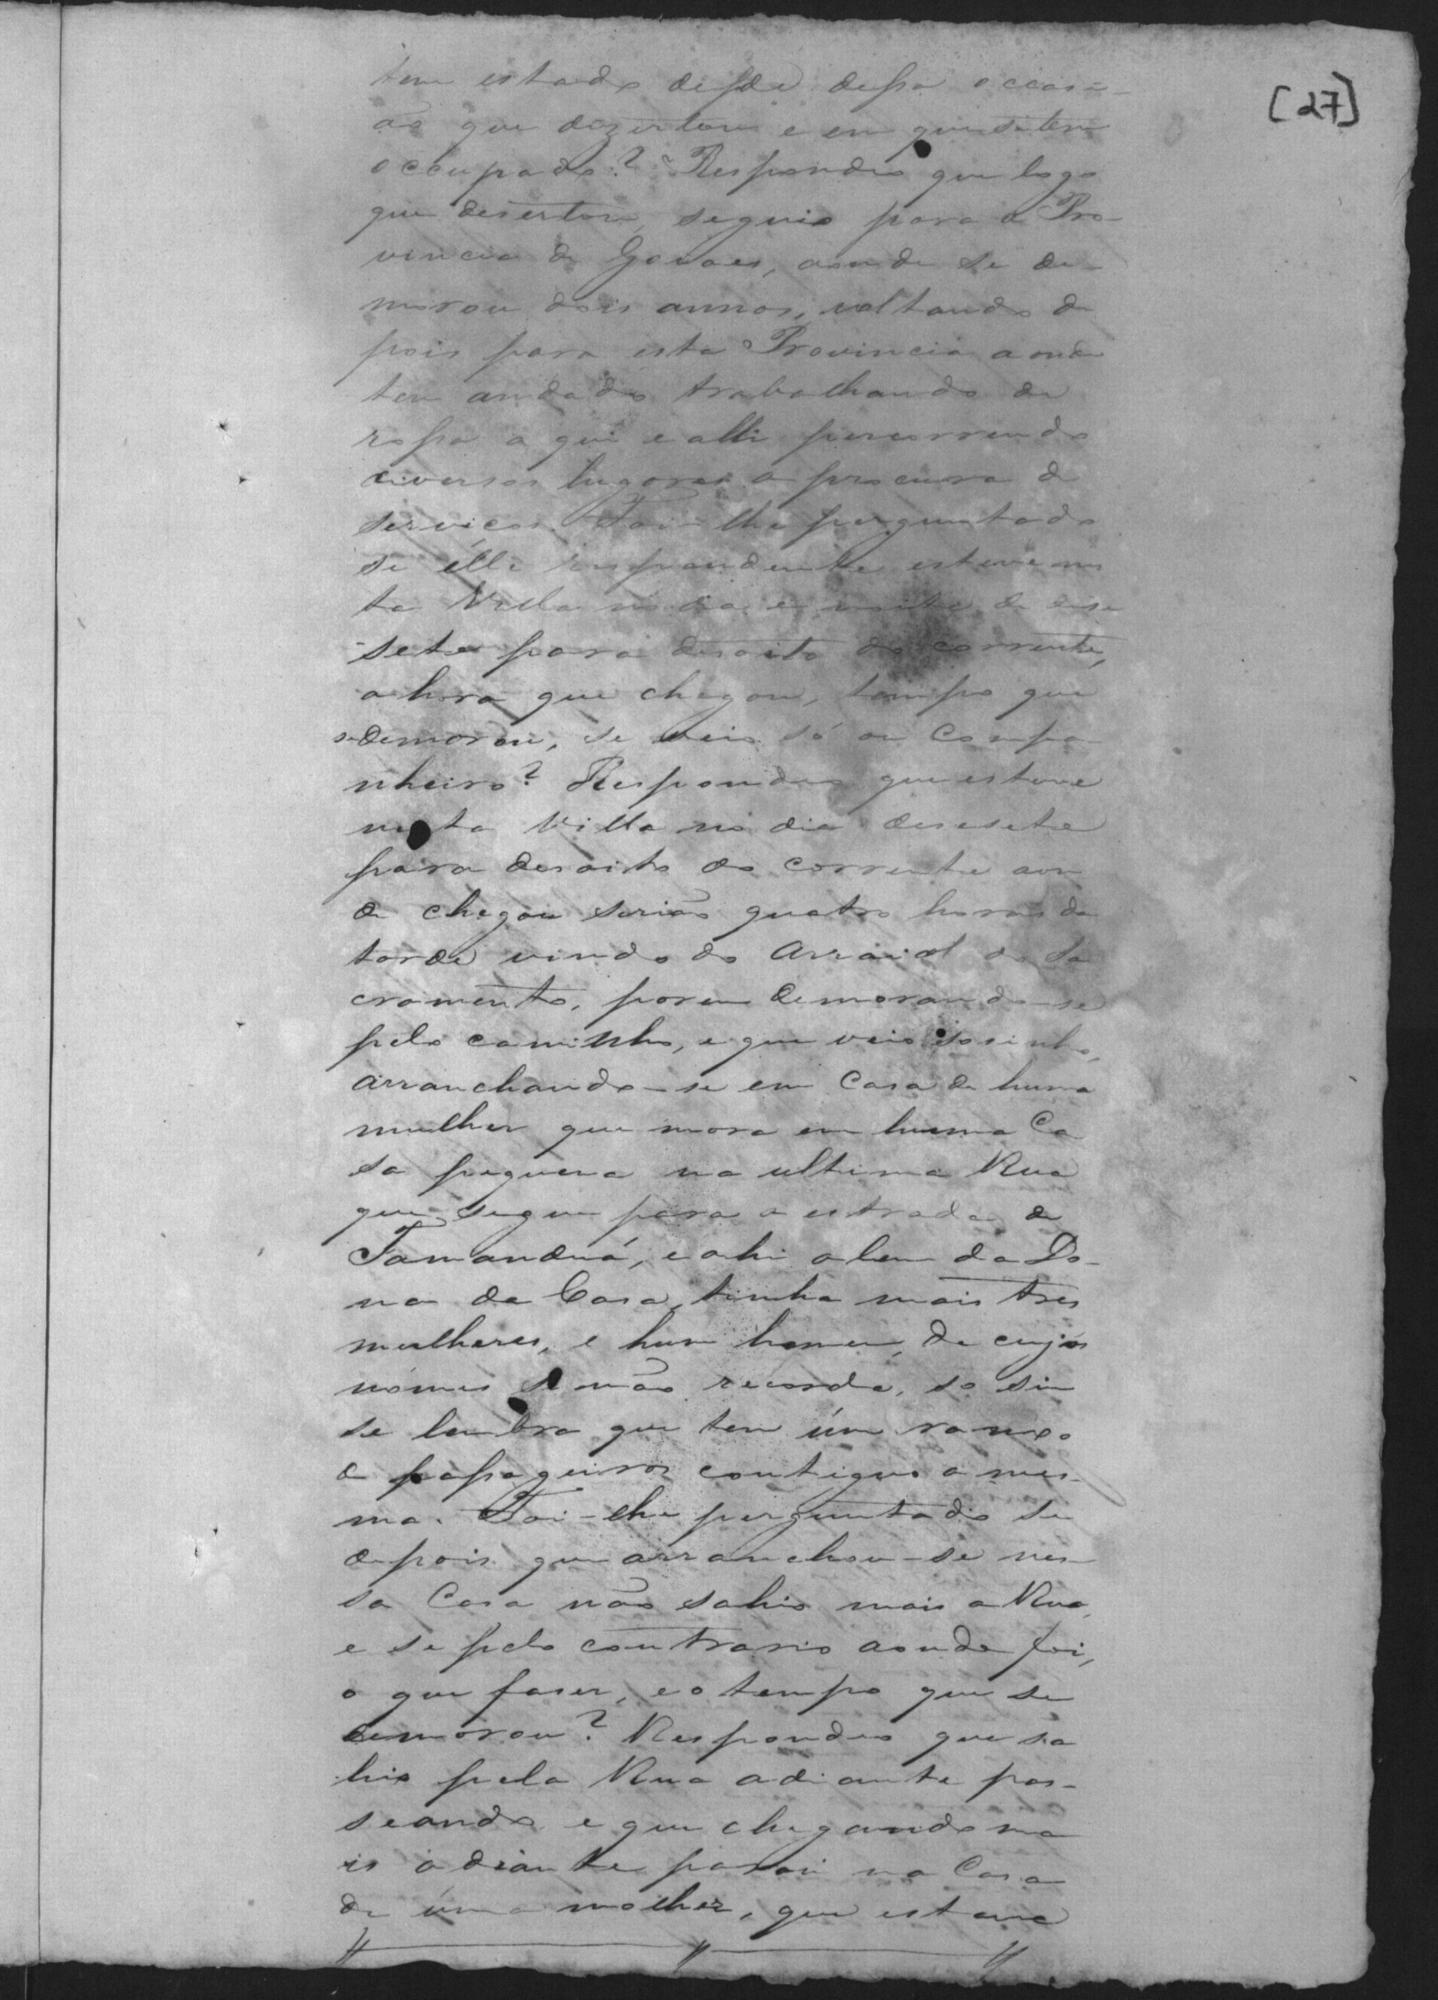 [27]
tem estado desde dessa occasi-
ão que dezertou e em que se tem
occupado? Respondeo que logo
que desertou, seguio para a Pro-
vincia de Goiaes, aonde se de-
morou dois annos, voltando de
pois para esta Provincia aonde
tem andado trabalhando de
rossa a qui e alli percorrendo
diversos lugares a procura de
serviços. Foi-lhe perguntado
se élle respondente esteve nes
ta Villa no dia e noite de dese
sete para desoito do corrente,
a hora que chegou, tempo que
se demorou, se veio só ou compa
nheiro? Respondeo que esteve
nesta Villa no dia desesete
para desoito do corrente aon
de chegou serião quatro horas da
tarde vindo do Arraial do Sa
cramento, porem demorando-se
pelo caminho, e que veio sosinho,
arranchando-se em Casa de huma
mulher que mora em huma Ca
sa piquena na ultima Rua
que segue para a estrada de
Tamanduá, e ahi alem da Do-
na da Casa, tinha mais tres
mulheres, e hum homem, de cujos
nomes se não recorda, só sim
se lembra que tem úm rancho
de passageiros contiguo a mes-
ma. Foi-lhe perguntado se
depois que arranchou-se nes-
sa Casa não sahio mais a Rua,
e se pelo contrario aonde foi,
o que faser, e o tempo que se
demorou? Respondeo que sa
hio pela Rua adiante pas-
seando, e que chegando ma
is adiante parou na Casa
de úma molher, que estava